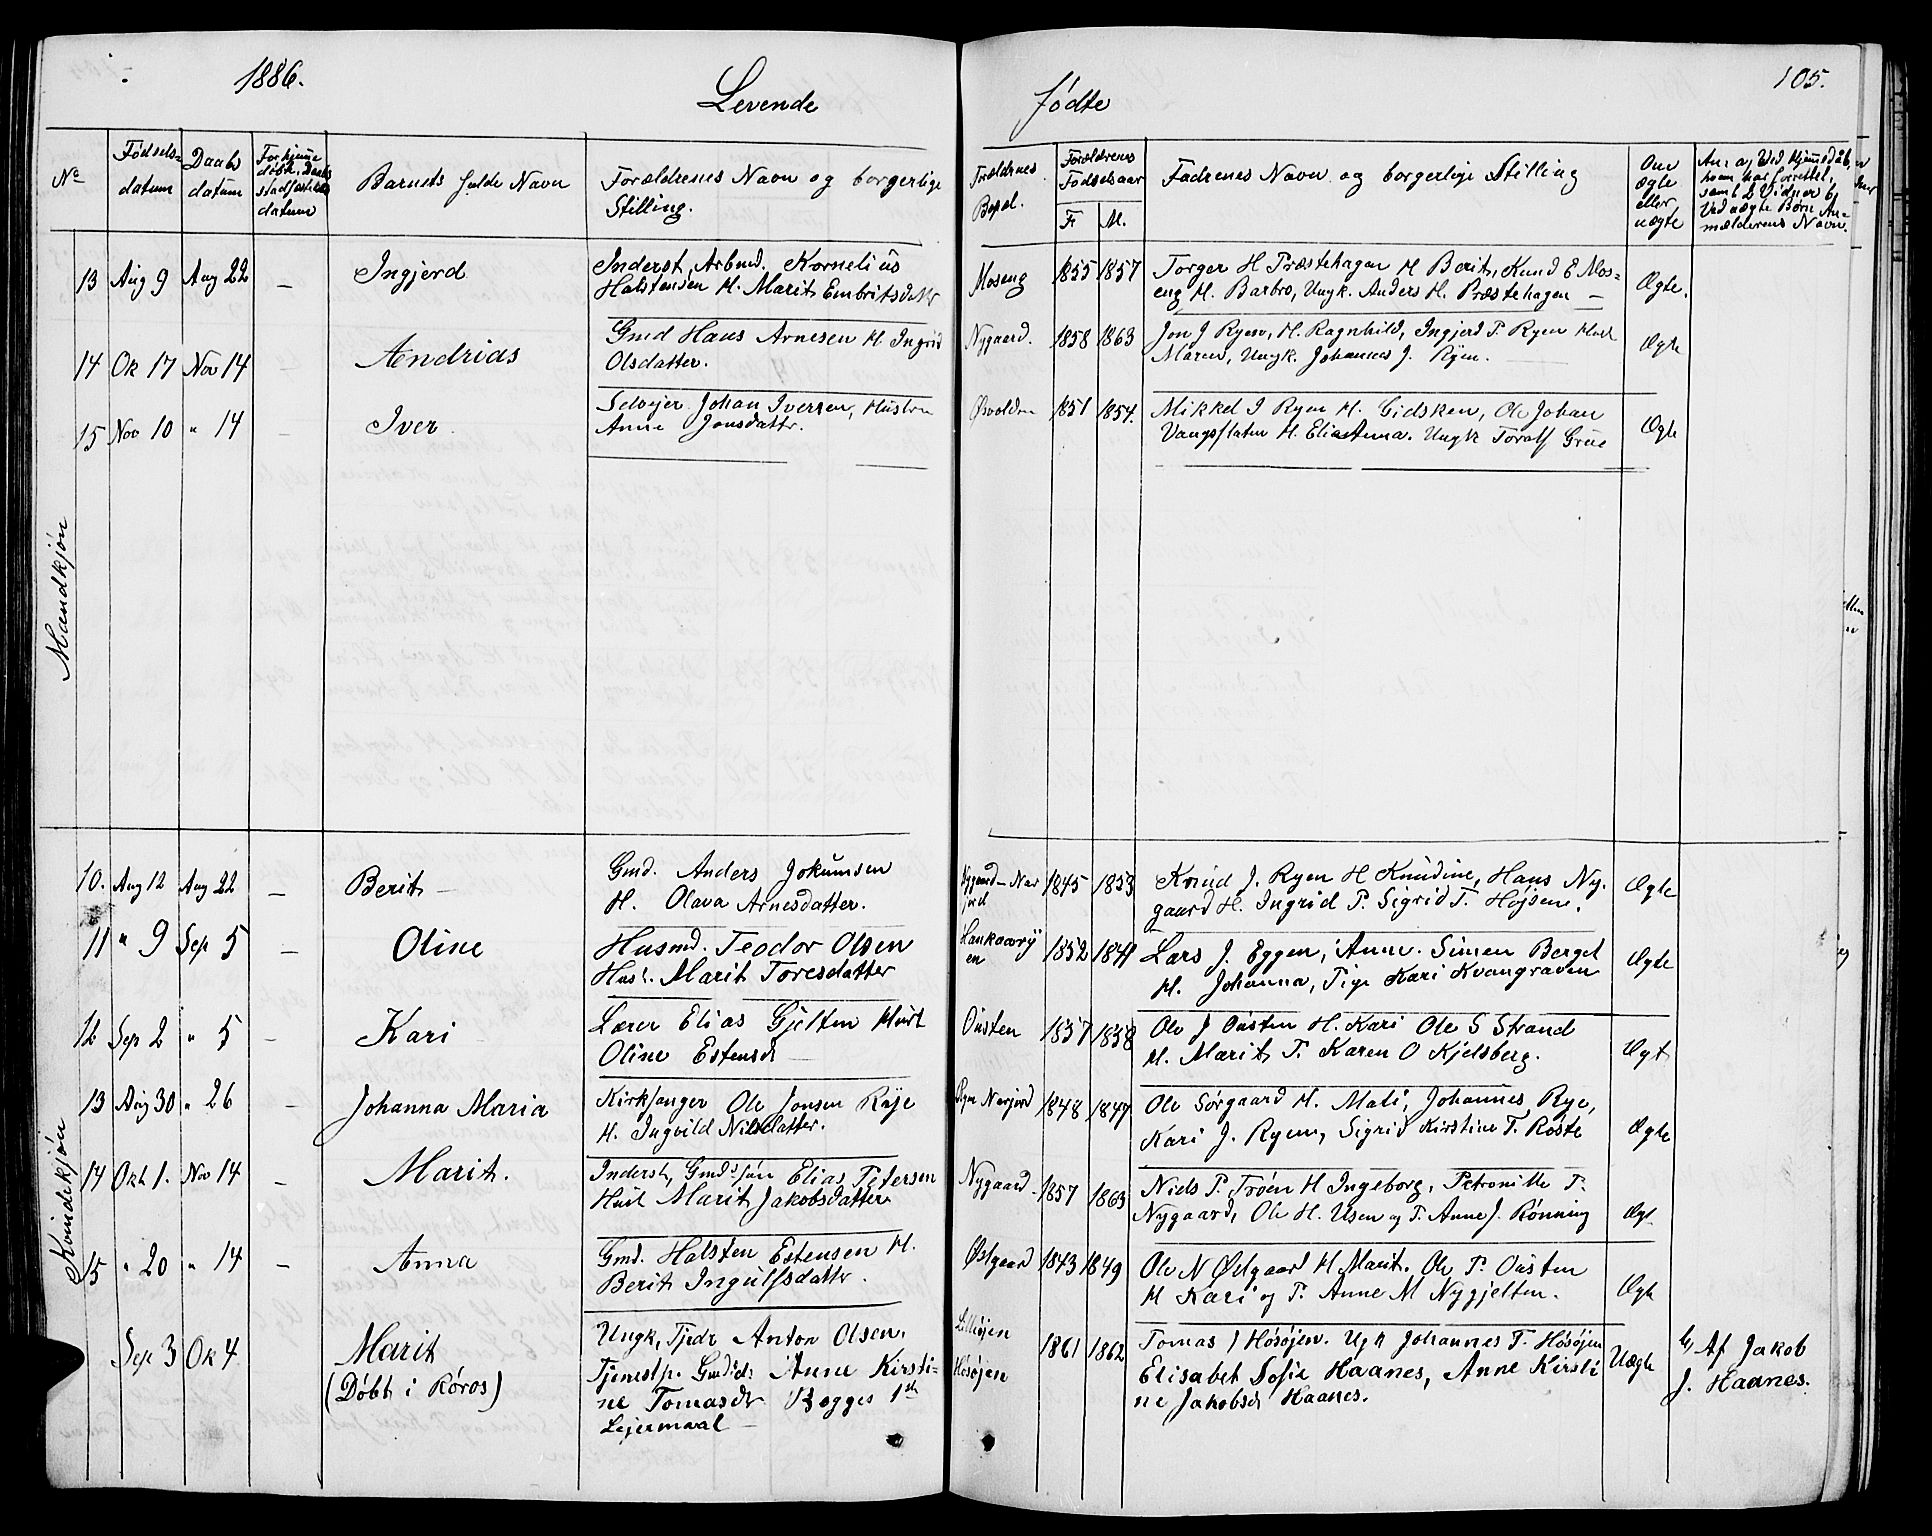 1886.
Levende
Fødte
105.
No
Fødsels-
datum
Daabs
datum
Forhjemme
døbt, Daabs
stadfæstelses
datum
Barnets fulde Navn
Forældrenes Navn og borgerlige
Stilling.
Forældrenes
Bopel.
Forældrenes
Fødselsaar
F. M.
Fadrenes Navn og borgerlige Stilling
Om
ægte
eller
uægte
An: a, Ved Hjemmedåb,
hvem har forrettet,
samt 2 Vidner b,
Ved uægte Børn An-
mælderens Navn.
Mandkjøn
13 Aug 9 Aug 22 — Ingjerd
Inderst, Arbmd. Kornelius
Halstensen H. Marit Embritsdattr
Moseng 1855 1857
Torger H Præstehagen H Berit, Knud E Mos-
eng H. Barbro, Ungk. Anders H. Præstehagen —
Ægte.
14 Ok 17 Nov 14 — Andrias
Gmd Hans Arnesen H. Ingrid
Olsdatter.
Nygaard. 1858 1863
Jon J Ryen, H. Ragnhild, Ingjerd T. Ryen
Maren, Ungk. Johannes J. Ryen.
Ægte
15 Nov 10 " 14 — Iver.
Selvejer Johan Iversen, Hustru
Anne Jonsdattr.
Øsvolden 1851 1854.
Mikkel I Ryen H. Gidsken, Ole Johan
Vangsflaten H. Elia Anna. Ungk Toralf Grue
Ægte
Kvindekjøn
10. Aug 12 Aug 22 — Berit —
Gmd. Anders Jokumsen
H. Olava Arnesdatter.
Nygaard-Nar
jord 1845 1853
Knud J. Ryen H Knudine, Hans Ny-
gaard H. Ingrid P. Sigrid T. Højsene.
Ægte
11 " 9 Sep 5 — Oline
Husmd. Teodor Olsen
Hus. Marit Toresdatter
1852 1841
Lars J. Eggen, Anne. Simen Berget
H. Johanna, Pige Kari Kvangraven
Ægte
12 Sep 2 " 5 — Kari
Lærer Elias Gjelten Hust
Oline Estensdr —
Ousten 1857 1858
Ole J Ousten H. Kari Ole S Strand
H. Marit P. Karen O Kjelsberg.
Ægt
13 Aug 30 " 26 — Johanna Maria
Kirksanger Ole Jonsen Røje
H. Ingvild Nilsdatter.
Ryen Narjord 1848 1847
Ole Sørgaard H. Mali, Johannes Rye,
Kari J. Ryen, Sigrid Kirstine T. Røste
Ægte
14 Okt 1. Nov 14 — Marit.
Inderst, Gmdssøn Elias Petersen
Hust Marit Jakobsdatter
Nygaard 1857 1863
Niels P. Trøen H Ingeborg, Petronille P.
Nygaard, Ole H. Usen og P. Anne J. Rønning
Ægt
15 " 20 " 14 — Anna
Gmd. Halsten Estensen H.
Berit Ingulfsdattr.
Østgaard 1843 1849
Ole N Østgaard H Marit. Ole P. Ousten
H Kari og P. Anne M Nygjelten.
Ægte
Sep 3 Ok 4 Marit
(Døbt i Røros)
Ungk, Tjedr Anton Olsen.
Tjenestp. Gmdsdr Anne Kirsti-
ne Tomasdr Begges 1ste
Lejermaal —
Lilleøjen
Høsøjen 1861 1862
Tomas J Høsøjen. Ugk Johannes T. Høsøjen
Elisabet Sofie Haanes, Anne Kirsti
ne Jakobsdr Haanes.
Uægte
b, Af Jakob
J. Haanes.